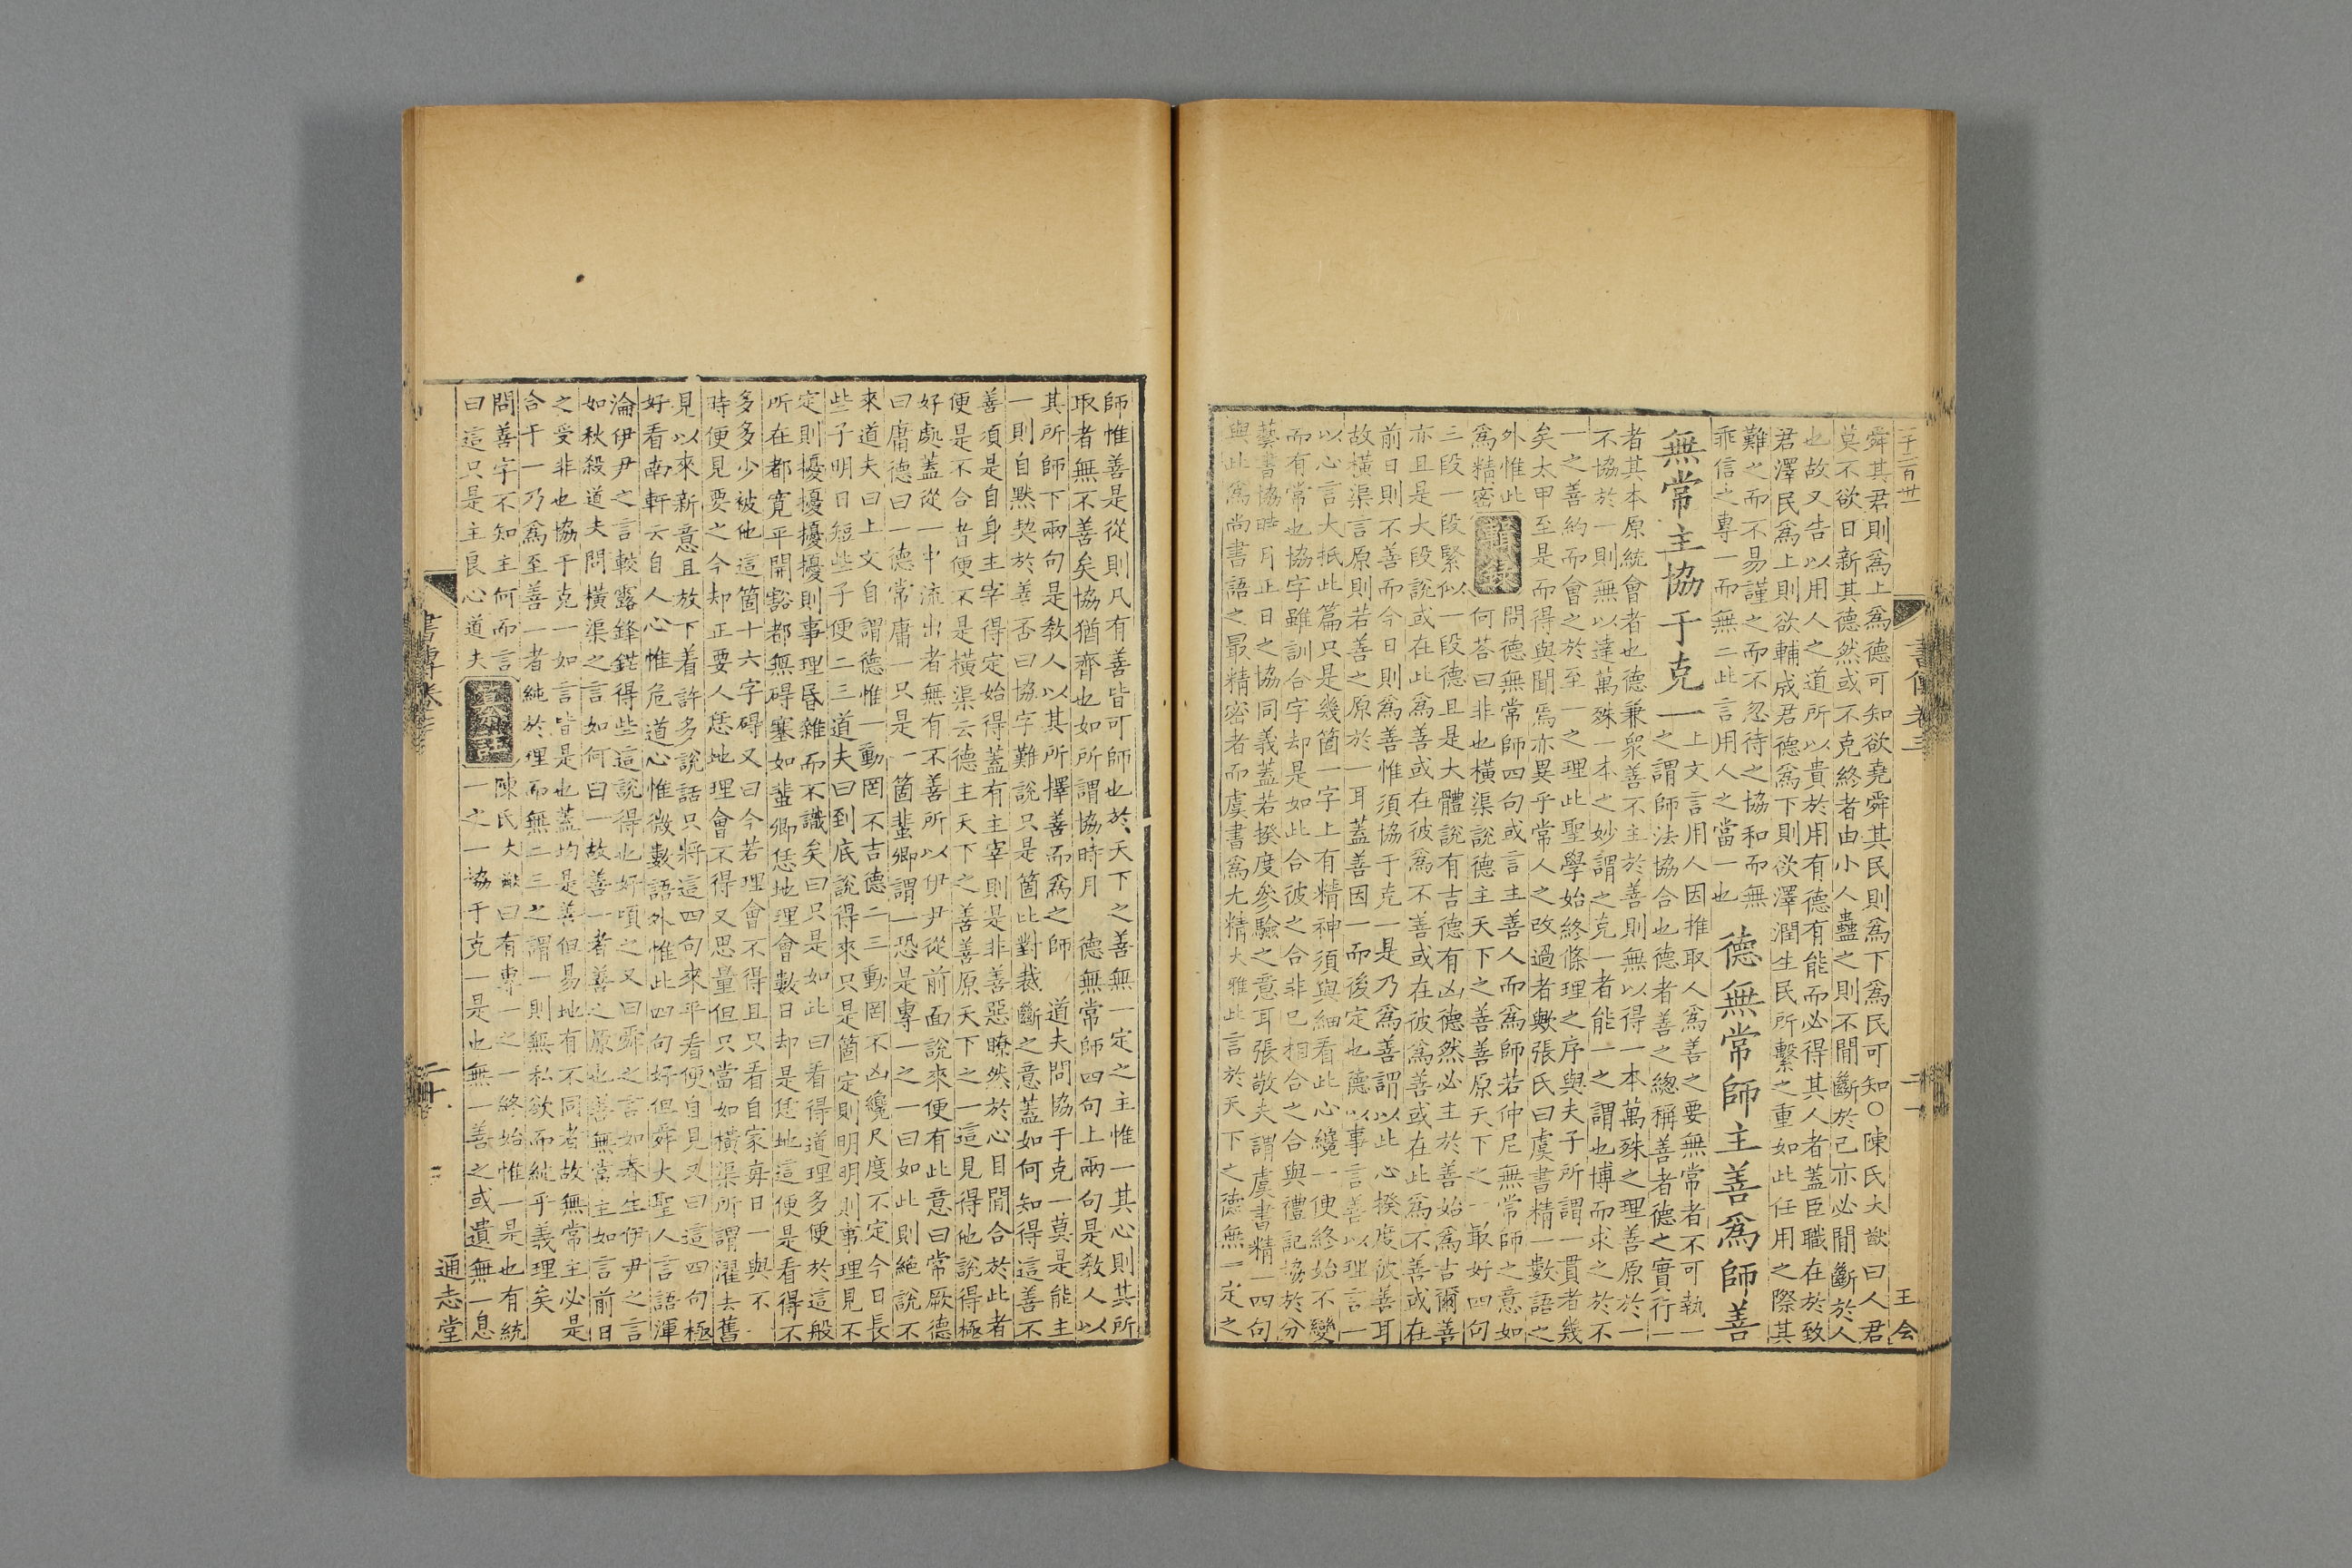 書傳卷三
舜其君則爲上爲德可知欲堯舜其民則爲下爲民可知○陳氏大猷曰人君
莫不欲日新其德然或不克終者由小人蠱之則不閒斷於己亦必閒斷於人
也故又告以用人之道所以貴於用有德有能而必得其人者蓋臣職在於致
君澤民爲上則欲輔成君德爲下則欲澤潤生民所繫之重如此任用之際其
難之而不易謹之而不忽待之協和而無
乖信之專一而無二此言用人之當一也
德無常師主善爲師善
無常主協于克一
上文言用人因推取人爲善之要無常者不可執一
之謂師法協合也德者善之總稱善者德之實行一
者其本原統會者也德兼衆善不主於善則無以得一本萬殊之理善原於一
不協於一則無以達萬殊一本之妙謂之克一者能一之謂也博而求之於不
一之善約而會之於至一之理此聖學始終條理之序與夫子所謂一貫者幾
矣太甲至是而得與聞焉亦異乎常人之改過者歟張氏曰虞書精一數語之
外惟此
爲精密
輯錄
問德無常師四句或言主善人而爲師若仲尼無常師之意如
何答曰非也橫渠說德主天下之善善原天下之一最好四句
三段一段緊似一段德且是大體說有吉德有凶德然必主於善始爲吉爾善
亦且是大段說或在此爲善或在彼爲不善或在彼爲善或在此爲不善或在
前日則不善而今日則爲善惟須協于克一是乃爲善謂以此心揆度彼善耳
故橫渠言原則若善之原於一耳蓋善因一而後定也德以事言善以理言一
以心言大抵此篇只是幾箇一字上有精神須與細看此心纔一便終始不變
而有常也協字雖訓合字却是如此合彼之合非已相合之合與禮記協於分
藝書協時月正日之協同義蓋若揆度參驗之意耳張敬夫謂虞書精一四句
與此爲尚書語之最精密者而虞書爲尤精大雅此言於天下之德無一定之
師惟善是從則凡有善皆可師也於天下之善無一定之主惟一其心則其所
取者無不善矣協猶齊也如所謂協時月 德無常師四句上兩句是敎人以
其所師下兩句是敎人以其所擇善而爲之師 道夫問協于克一莫是能主
一則自默契於善否曰協字難說只是箇比對裁斷之意蓋如何知得這善不
善須是自身主宰得定始得蓋有主宰則是非善惡瞭然於心目閒合於此者
便是不合者便不是橫渠云德主天下之善善原天下之一這見得他說得極
好處蓋從一中流出者無有不善所以伊尹從前面說來便有此意曰常厥德
曰庸德曰一德常庸一只是一箇蜚卿謂一恐是專一之一曰如此則絶說不
來道夫曰上文自謂德惟一動罔不吉德二三動罔不凶纔尺度不定今日長
些子明日短些子便二三道夫曰到底說得來只是箇定則明明則事理見不
定則擾擾擾擾則事理昏雜而不識矣曰只是如此曰看得道理多便於這般
所在都寛平開豁都無碍塞如蜚卿恁地理會數日却是恁地這便是看得不
多多少被他這箇十六字碍又曰今若理會不得且只看自家每日一與不一
時便見要之今却正要人恁地理會不得又思量但只當如橫渠所謂濯去舊
見以來新意且放下着許多說話只將這四句來平看便自見又曰這四句極
好看南軒云自人心惟危道心惟微數語外惟此四句好但舜大聖人言語渾
淪伊尹之言較露鋒鋩得些這說得也好頃之又曰舜之言如春生伊尹之言
如秋殺道夫問橫渠之言如何曰一故善一者善之原也善無常主如言前日
之受非也協于克一如言皆是也蓋均是善但易地有不同者故無常主必是
合于一乃爲至善一者純於理而無二三之謂一則無私欲而純乎義理矣
問善字不知主何而言
曰這只是主良心道夫
纂註
陳氏大猷曰有專一之一終始惟一是也有統
一之一協于克一是也無一善之或遺無一息
通志堂